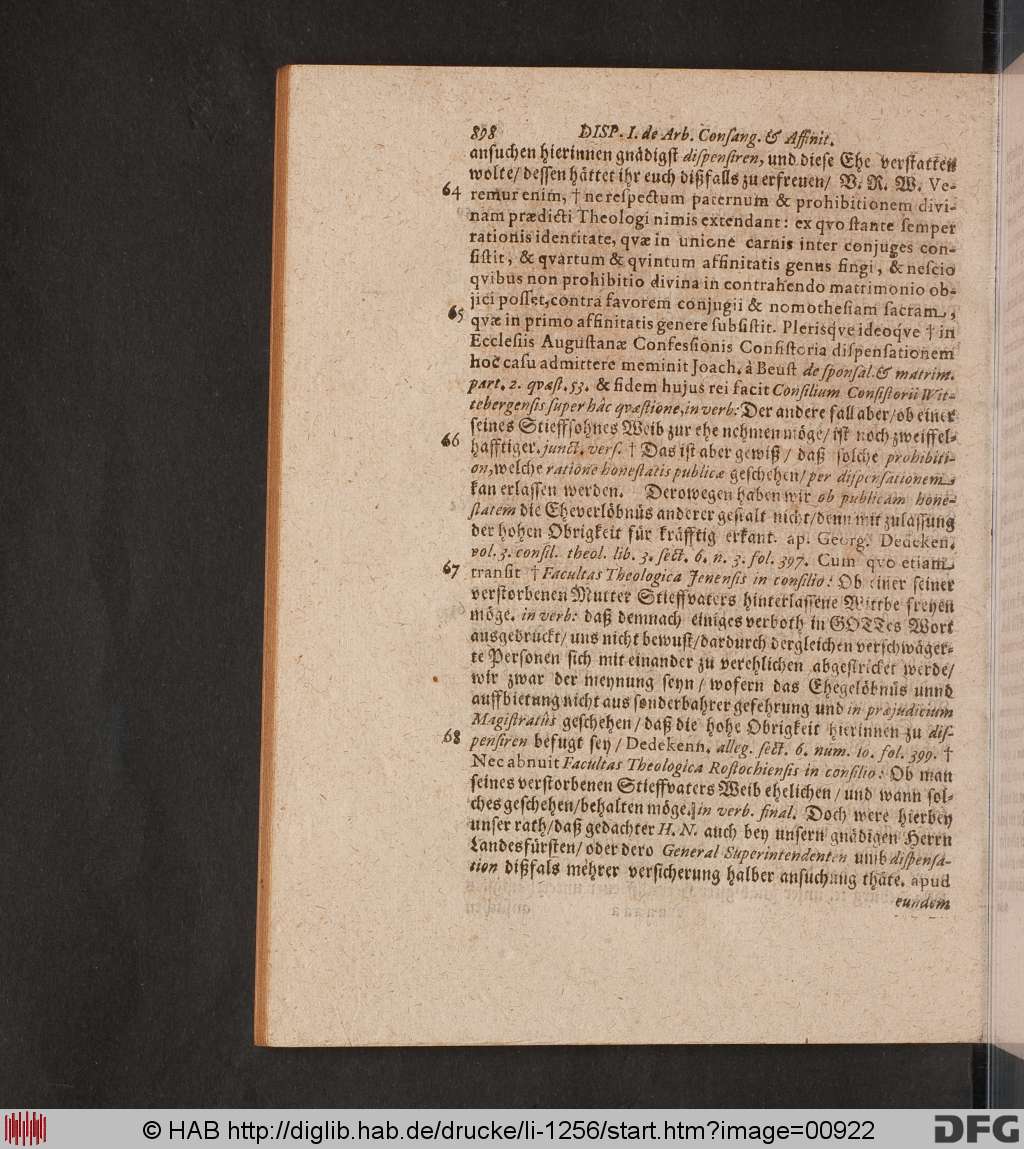 898 DISP. I. de Arb. Consang. & Affinit.
ansuchen hierinnen gnädigst dispensiren, und diese Ehe verstatten
wolte/ dessen hättet ihr euch dißfalls zu erfreuen/ V. R. W. Ve-
64 remur enim, † ne respectum paternum & prohibitionem divi-
nam prædicti Theologi nimis extendant: ex qvo stante semper
rationis identitate, qvæ in unione carnis inter conjuges con-
sistit, & qvartum & qvintum affinitatis genus fingi, & nescio
qvibus non prohibitio divina in contrahendo matrimonio ob-
jici posset, contra favorem conjugii & nomothesiam sacram,
65 qvæ in primo affinitatis genere subsistit. Plerisqve ideoqve † in
Ecclesiis Augustanæ Confessionis Consistoria dispensationem
hoc casu admittere meminit Joach. à Beust de sponsal. & matrim.
part. 2. qvæst. 53. & fidem hujus rei facit Consilium Consistorii Wit-
tebergensis super hâc qvæstione, in verb: Der andere fall aber/ ob einer
seines Stieffsohnes Weib zur ehe nehmen möge/ ist noch zweiffel-
66 hafftiger. junct. vers. † Das ist aber gewiß/ daß solche prohibiti-
on, welche ratione honestatis publicæ geschehen/ per dispensationem
kan erlassen werden. Derowegen haben wir ob publicam hone-
statem die Eheverlöbnüs anderer gestalt nicht/ denn mit zulassung
der hohen Obrigkeit für kräfftig erkant. ap. Georg. Dedeken.
vol. 3. consil. theol. lib. 3. sect. 6. n. 3. fol. 397. Cum qvo etiam
67 transit † Facultas Theologica Jenensis in consilio: Ob einer seiner
verstorbenen Mutter Stieffvaters hinterlassene Wittbe freyen
möge. in verb: daß demnach einiges verboth in GOTTes Wort
ausgedruckt/ uns nicht bewust/ dardurch dergleichen verschwäger-
te Personen sich mit einander zu verehlichen abgestricket werde/
wir zwar der meynung seyn/ wofern das Ehegelöbnüs unnd
auffbietung nicht aus sonderbahrer gefehrung und in præjudicium
Magistratûs geschehen/ daß die hohe Obrigkeit hierinnen zu dis-
68 pensiren befugt sey/ Dedekenn. alleg. sect. 6. num. 10. fol. 399. †
Nec abnuit Facultas Theologica Rostochiensis in consilio: Ob man
seines verstorbenen Stieffvaters Weib ehelichen/ und wann sol-
ches geschehen/ behalten möge. in verb. final. Doch were hierbey
unser rath/ daß gedachter H. N. auch bey unsern gnädigen Herrn
Landesfürsten/ oder dero General Superintendenten umb dispensa-
tion dißfals mehrer versicherung halber ansuchung thäte. apud
eundem
© HAB http://diglib.hab.de/drucke/li-1256/start.htm?image=00922
DFG